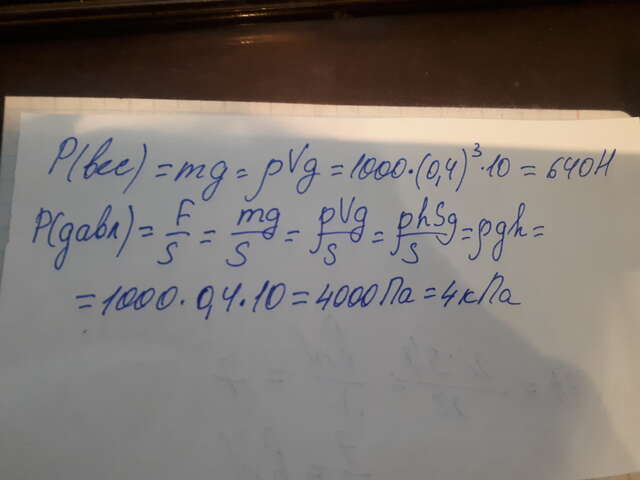 P(вес) = mg = ρVg = 1000·(0,4)³·10 = 640Н
P(давл) = F/S = mg/S = ρVg/S = ρhSg/S = ρgh =
= 1000·0,4·10 = 4000Па = 4кПа